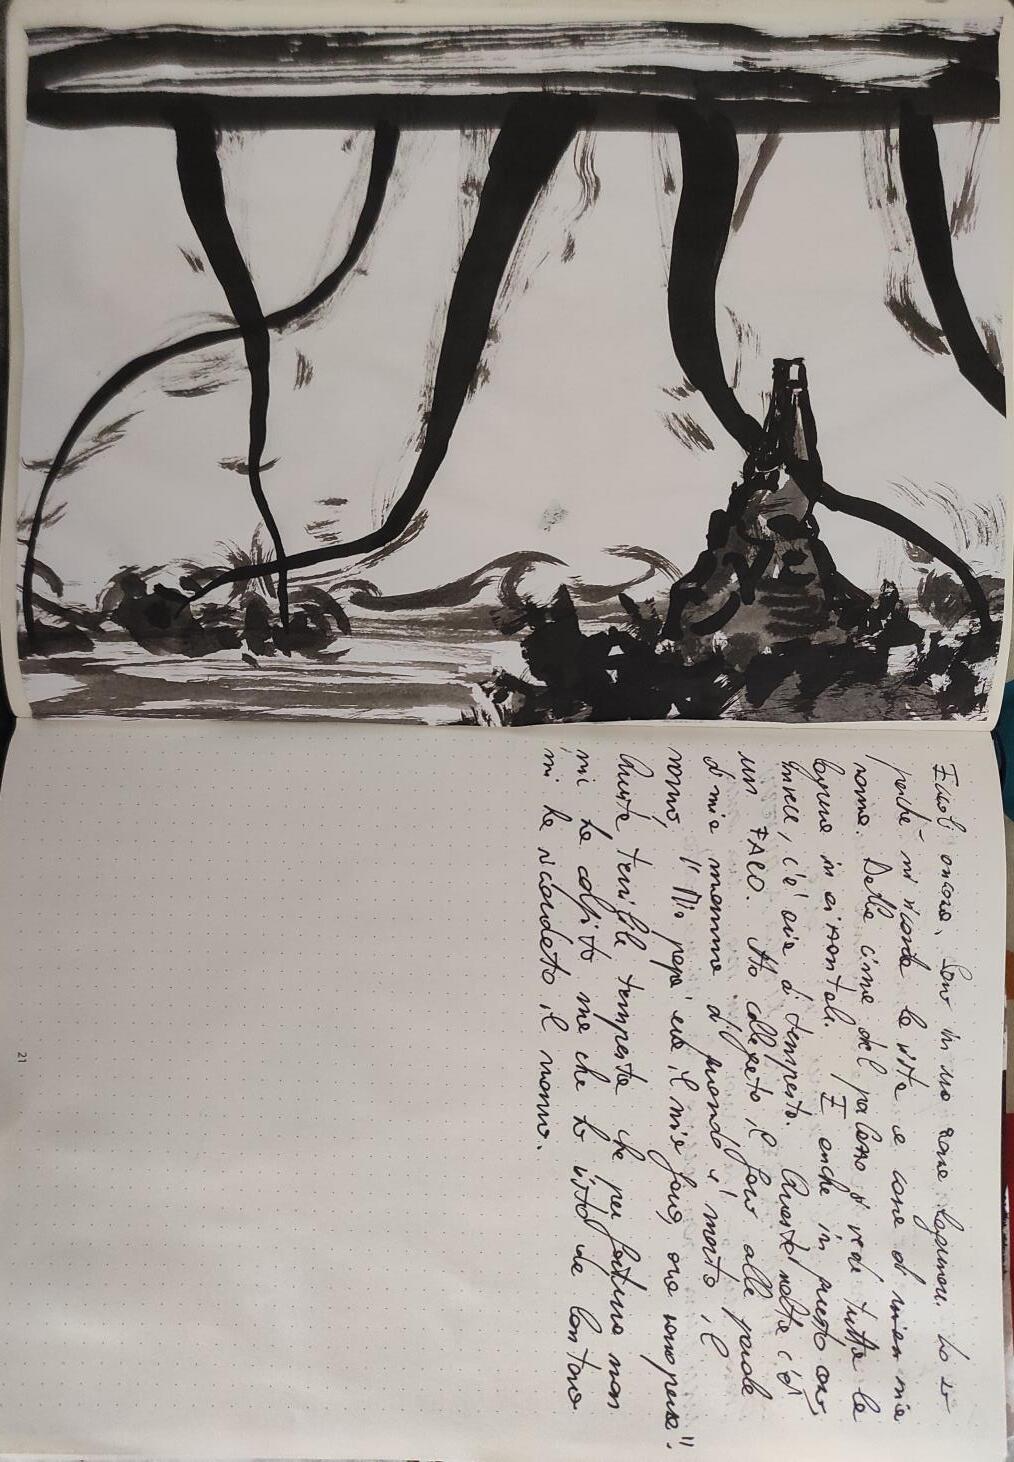 Eccoli ancora. Sono in una zona lagunare. Lo so
perché mi ricorda la vista e casa di mia
nonna. Dalla cima del palazzo si vede tutta la
laguna in orizzontale. E anche in questo caso,
invece, c'è aria di tempesta. Questa volta c'è
un FARO. Ho collegato il faro alle parole
di mia mamma di quando è morto il
nonno, "Mio papà era il mio faro, ora sono persa".
Questa terribile tempesta che per fortuna non
mi ha colpito ma che ho visto da lontano
mi ha ricordato il nonno.
21